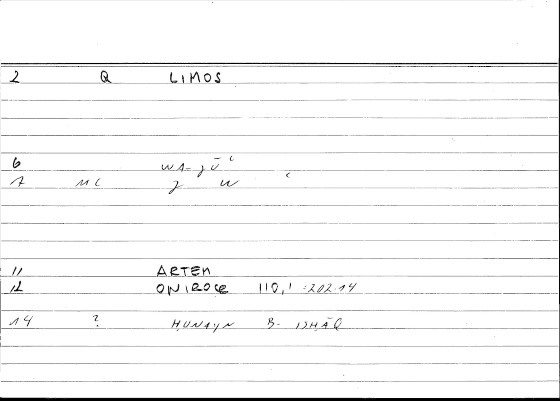 2 Q LIMOS
6 WA-jūʿ
A MC j W ʿ
11 ARTEM
12 ONIROCR 110,1 = 202.14
14 ? HUNAYN B. ISHĀQ